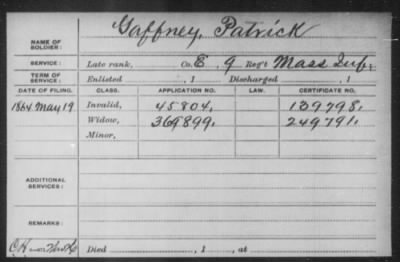 Gaffney, Patrick
NAME OF SOLDIER:
SERVICE: Late rank, Co. E, 9 Reg't Mass Inf.
TERM OF SERVICE: Enlisted , 1 Discharged , 1
DATE OF FILING. CLASS. APPLICATION NO. LAW. CERTIFICATE NO.
1864 May 19 Invalid, 45804, 139798,
Widow, 369899, 249791,
Minor,
ADDITIONAL SERVICES:
REMARKS:
Died , 1 , at